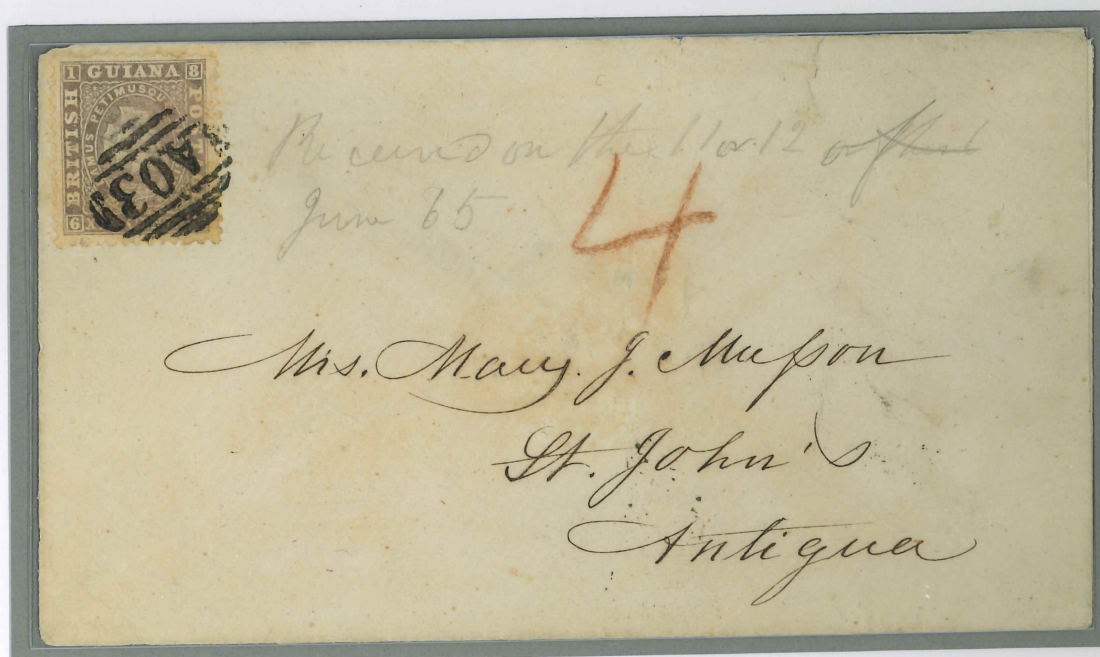 1 GUIANA 8
BRITISH
AMUS PETIMUSQU
6
A03
Received on the 11 or 12 of this
June 65
4
Mrs. Mary. J. Musson
St. John's
Antigua